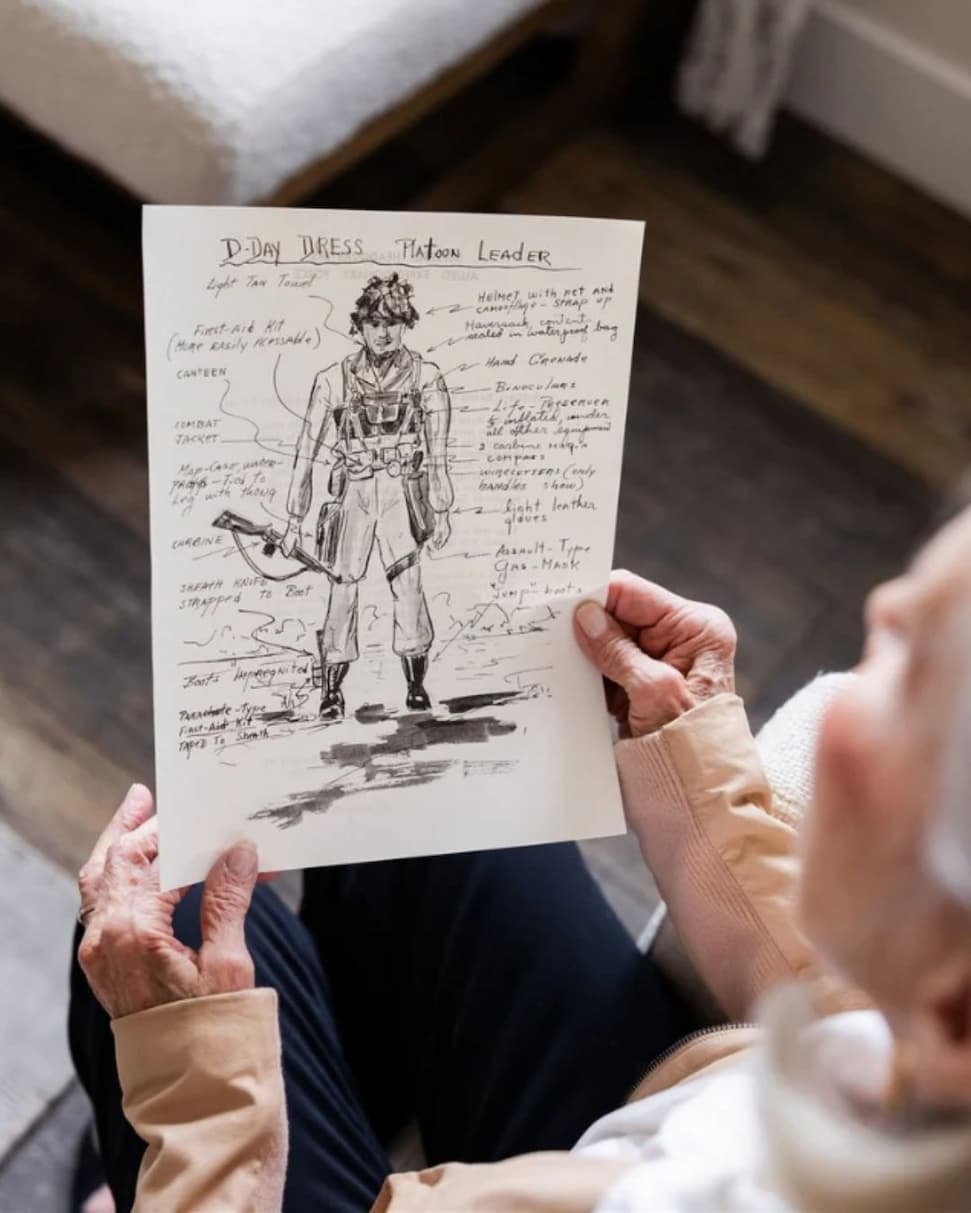 D-DAY DRESS PLATOON LEADER
Light Tan Towel
First-Aid Kit
(More Easily Acessable)
CANTEEN
COMBAT
JACKET
Map-Case, water-
proof - Tied to
Leg with thong
CARBINE
SHEATH KNIFE
STRAPPED to Boot
Boots "Impregnited"
Parachute-Type
First-Aid Kit
TAPED To Sheath
HELMET with NET AND
CAMOUFLAGE - STRAP UP
Haversack, content
sealed in waterproof bag
HAND GRENADE
Binoculars
Life-Preserver
inflated, under
all other equipment
2 carbine mag.
compass
WIRECUTTERS (only
handles show)
light leather
gloves
Assault-Type
Gas-Mask
"Jump" boots